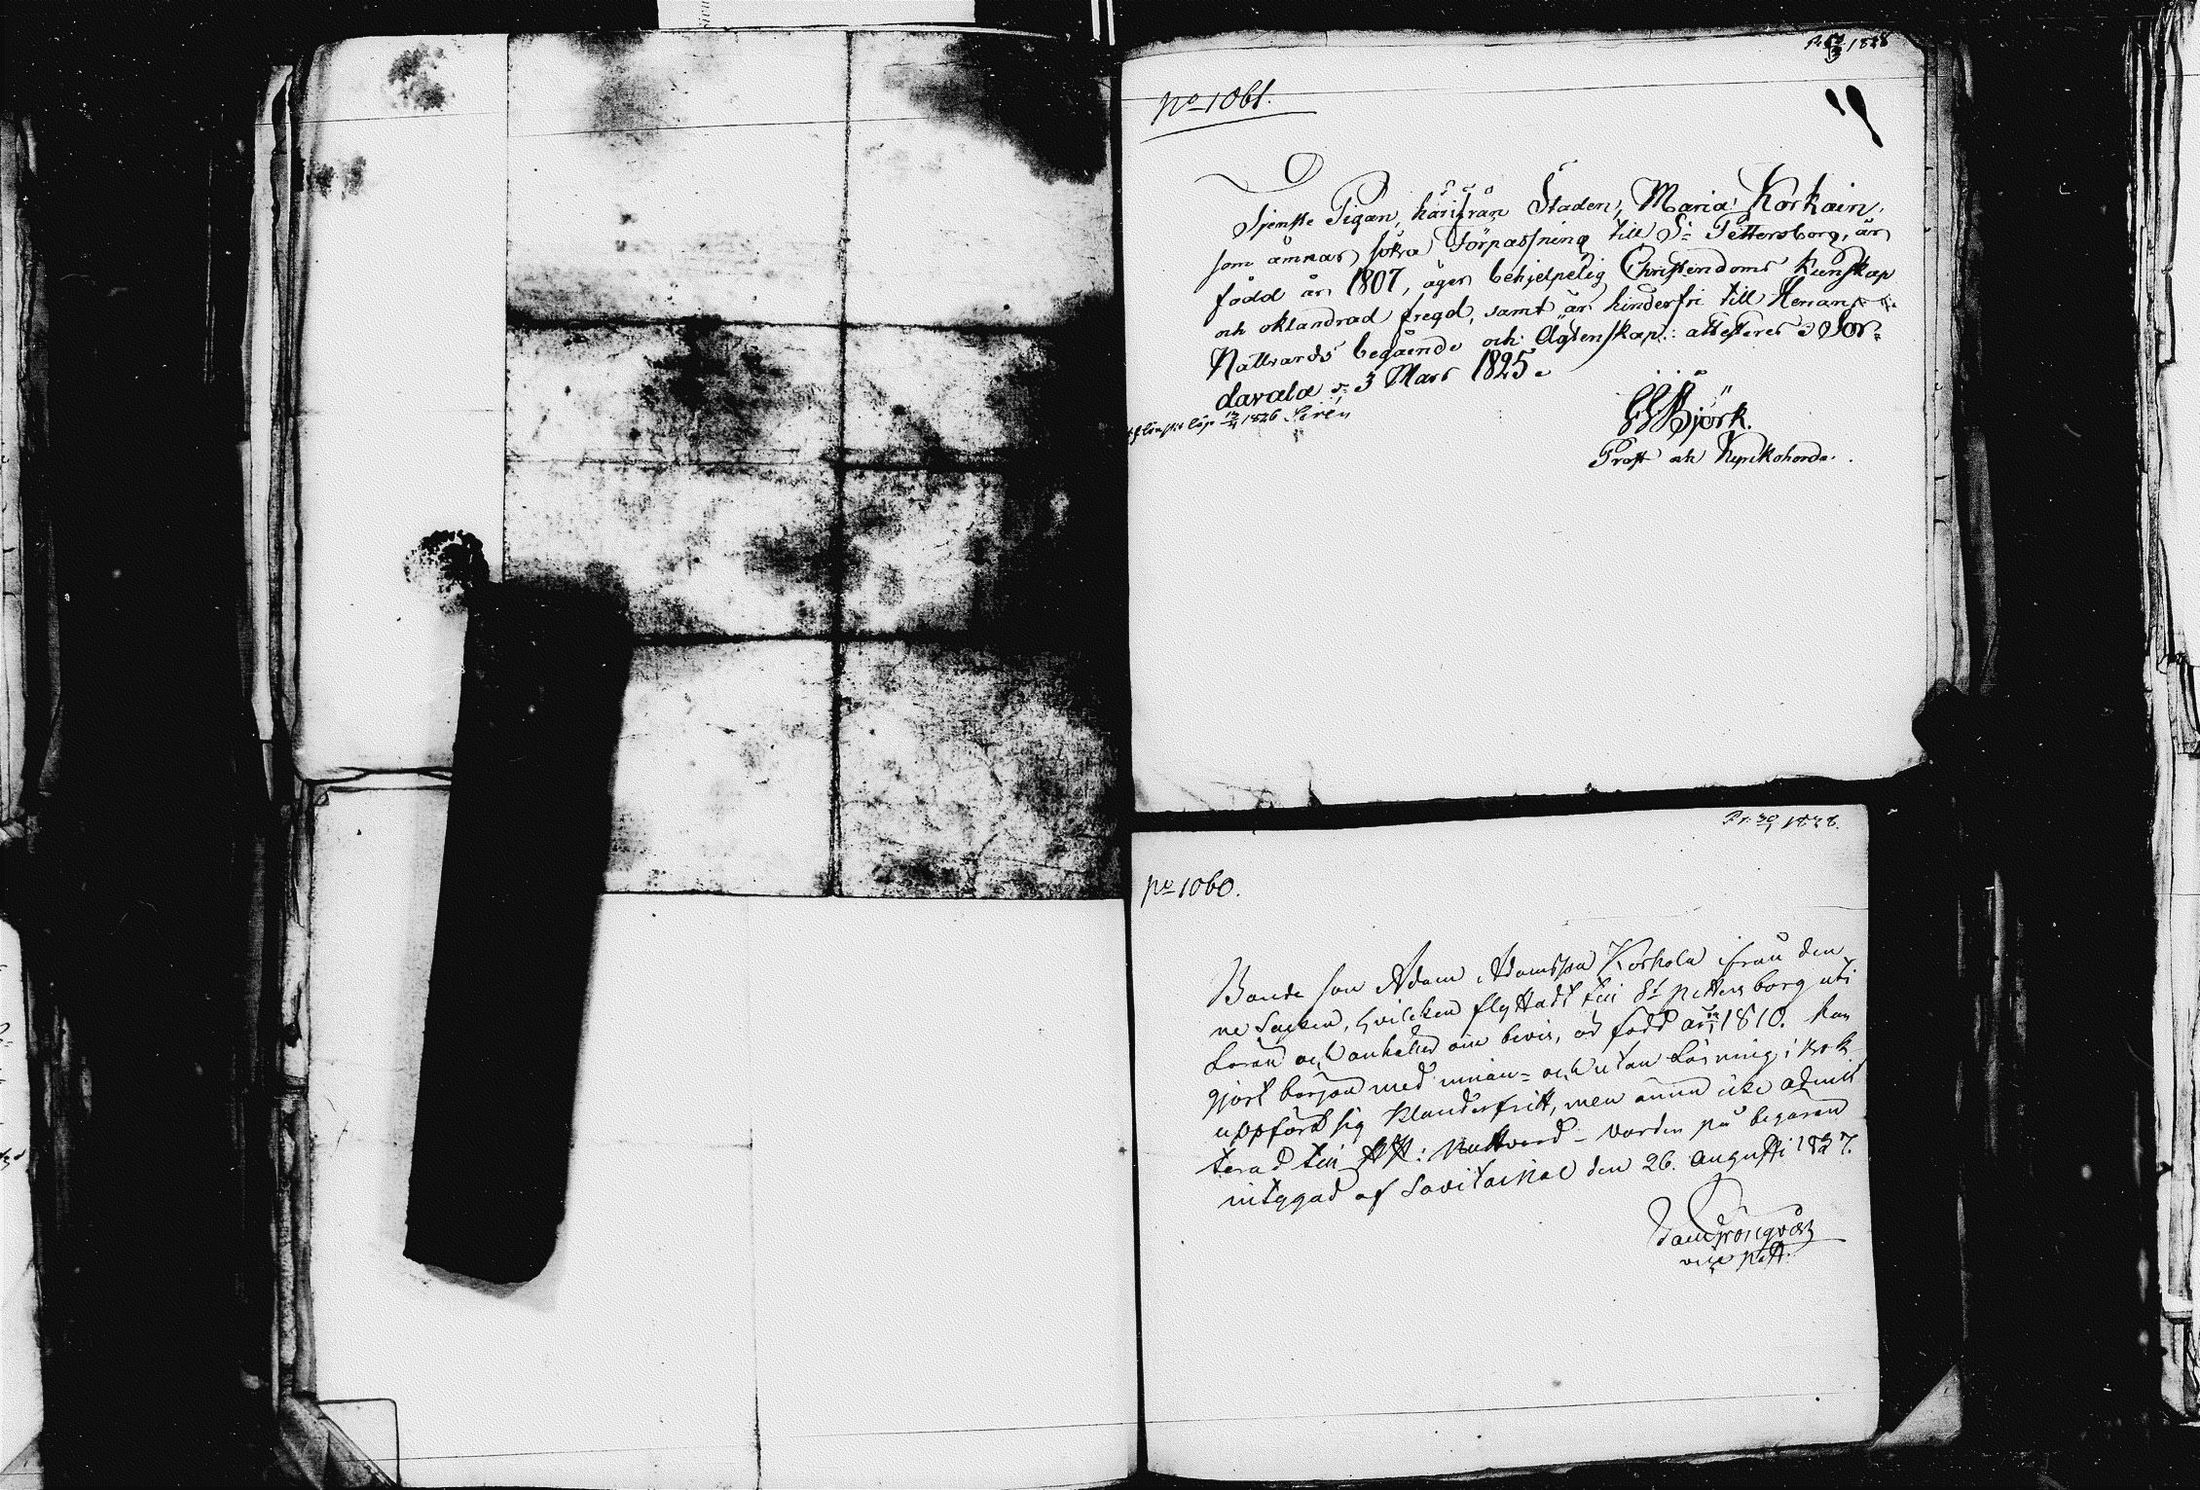 Pr. 1828
No 1061.
Tjenste Pigan, härifrån Staden, Maria Korkain,
som ämnar söka Förpassning till St Pettersborg, är
född år 1807, äger behjelpelig Christendoms Kunskap
och oklandrad fregd, samt är hinderfri till Herrans H.
Nattvards begående och Ägtenskap: attesteras Sor-
davala d. 3 Mars 1825.
1826 Sirén
Björk.
Prost och Kyrckoherde.
Pr. 30/1 1828.
No 1060.
Bonde son Adam Adamsson Korhola ifrån den
ne Socken, hvilcken flyttadt till St Pettersborg uti
och anhåller om bevis, är född år 1810. har
gjort början med innan- och utan Läsning i Bok
uppfördt sig Klanderfritt, men ännu icke admit
terad till HH: Nattvard - varder på begäran
intygad af Savitaipal den 26. Augusti 1827.
vice Past.